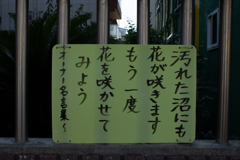 汚れた沼にも
花が咲きます
もう一度
花を咲かせて
みよう
オーナー名言集〜